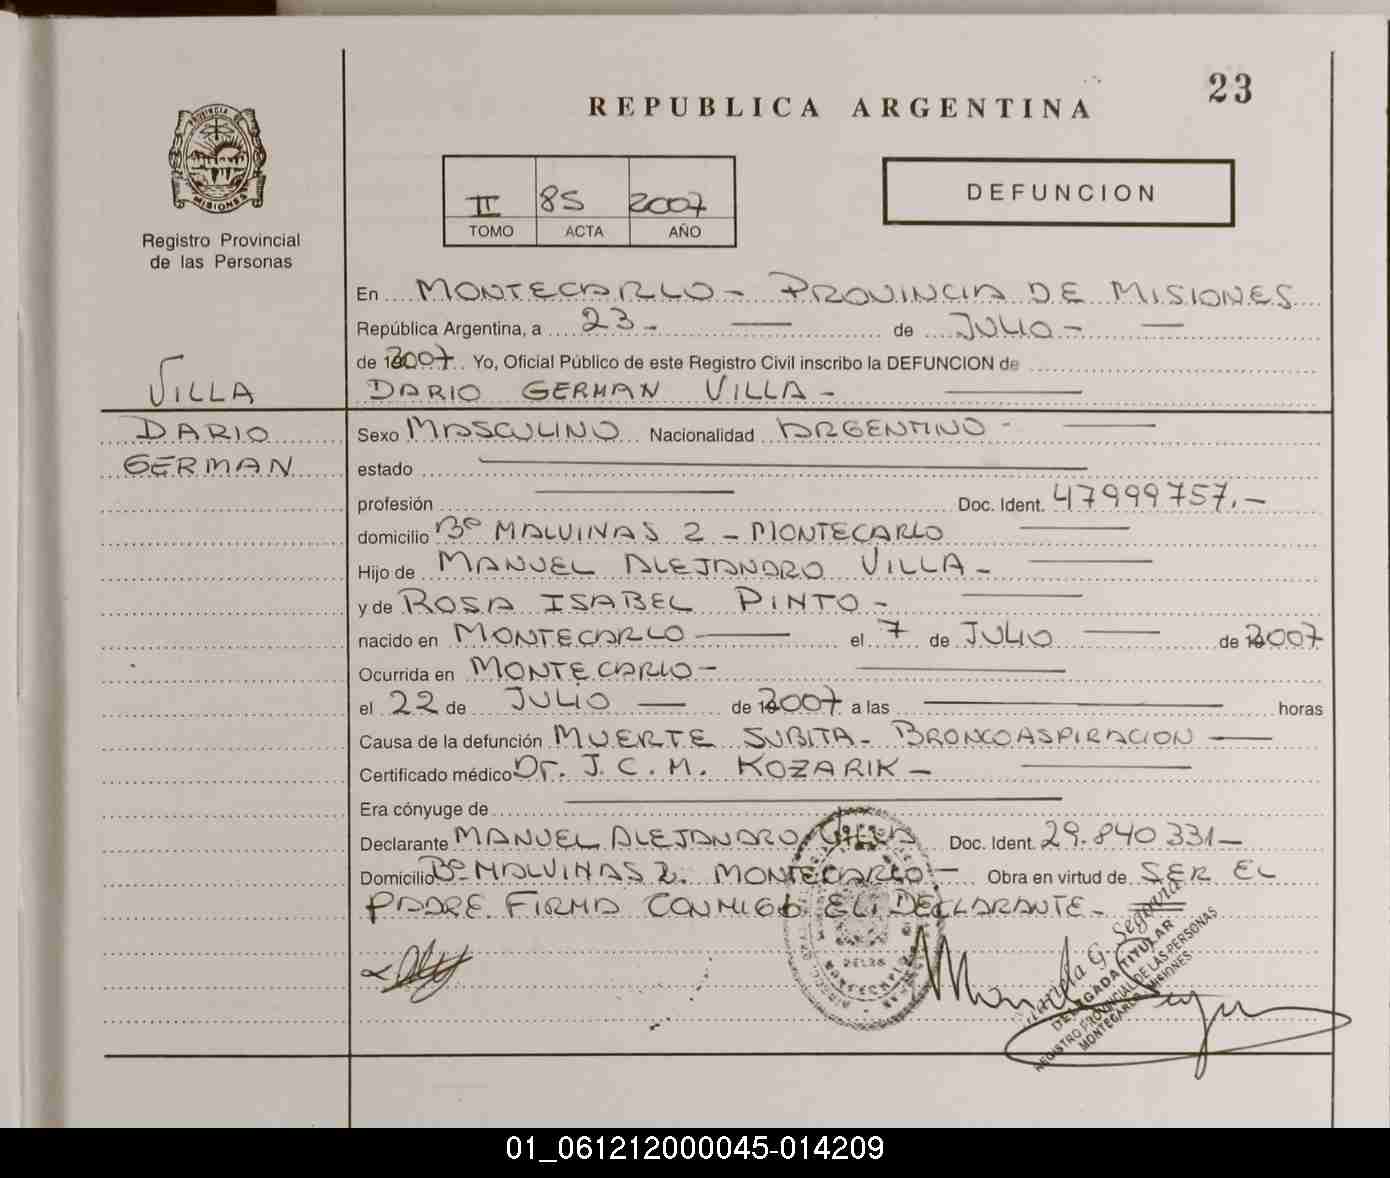 23
REPUBLICA ARGENTINA
PROVINCIA DE
MISIONES
Registro Provincial
de las Personas
II 85 2007
TOMO ACTA AÑO
DEFUNCION
En MONTECARLO - PROVINCIA DE MISIONES
República Argentina, a 23 - de JULIO -
de 2007. Yo, Oficial Público de este Registro Civil inscribo la DEFUNCION de
DARIO GERMAN VILLA -
VILLA
DARIO
GERMAN
Sexo MASCULINO Nacionalidad ARGENTINO -
estado
profesión Doc. Ident. 47999757.-
domicilio Bº MALVINAS 2 - MONTECARLO
Hijo de MANUEL ALEJANDRO VILLA -
y de ROSA ISABEL PINTO -
nacido en MONTECARLO el 7 de JULIO de 2007
Ocurrida en MONTECARLO -
el 22 de JULIO de 2007 a las horas
Causa de la defunción MUERTE SUBITA - BRONCOASPIRACION
Certificado médico Dr. J. C. M. KOZARIK -
Era cónyuge de
Declarante MANUEL ALEJANDRO VILLA Doc. Ident. 29.840.331 -
Domicilio Bº MALVINAS 2. MONTECARLO - Obra en virtud de SER EL
PADRE. FIRMA CONMIGO EL DECLARANTE -
Mariela G. Segovia
DELEGADA TITULAR
REGISTRO PROVINCIAL DE LAS PERSONAS
MONTECARLO - MISIONES
01_061212000045-014209